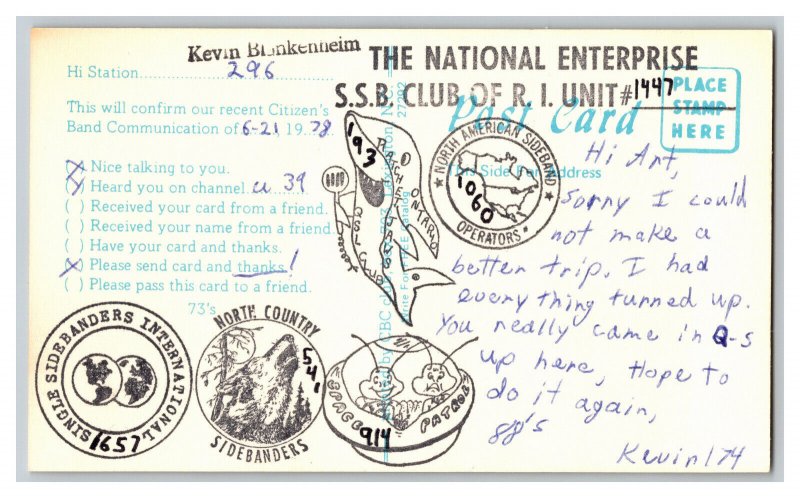 Kevin Blankenheim
THE NATIONAL ENTERPRISE
S.S.B. CLUB OF R. I. UNIT #1447
Hi Station 296
This will confirm our recent Citizen's
Band Communication of 6-21 19 78
(X) Nice talking to you.
(X) Heard you on channel u 39
( ) Received your card from a friend.
( ) Received your name from a friend.
( ) Have your card and thanks.
(X) Please send card and thanks!
( ) Please pass this card to a friend.
73's
Post Card
This Side For Address
PLACE
STAMP
HERE
27292
193
ONTARIO
QSL CLUB
NORTH AMERICAN SIDEBAND
1060
OPERATORS
Hi Art,
Sorry I could
not make a
better trip. I had
every thing turned up.
You really came in Q-5
up here, Hope to
do it again,
88's
Kevin 174
SINGLE SIDEBANDERS INTERNATIONAL
1657
NORTH COUNTRY
541
SIDEBANDERS
SPACE
PATROL
914